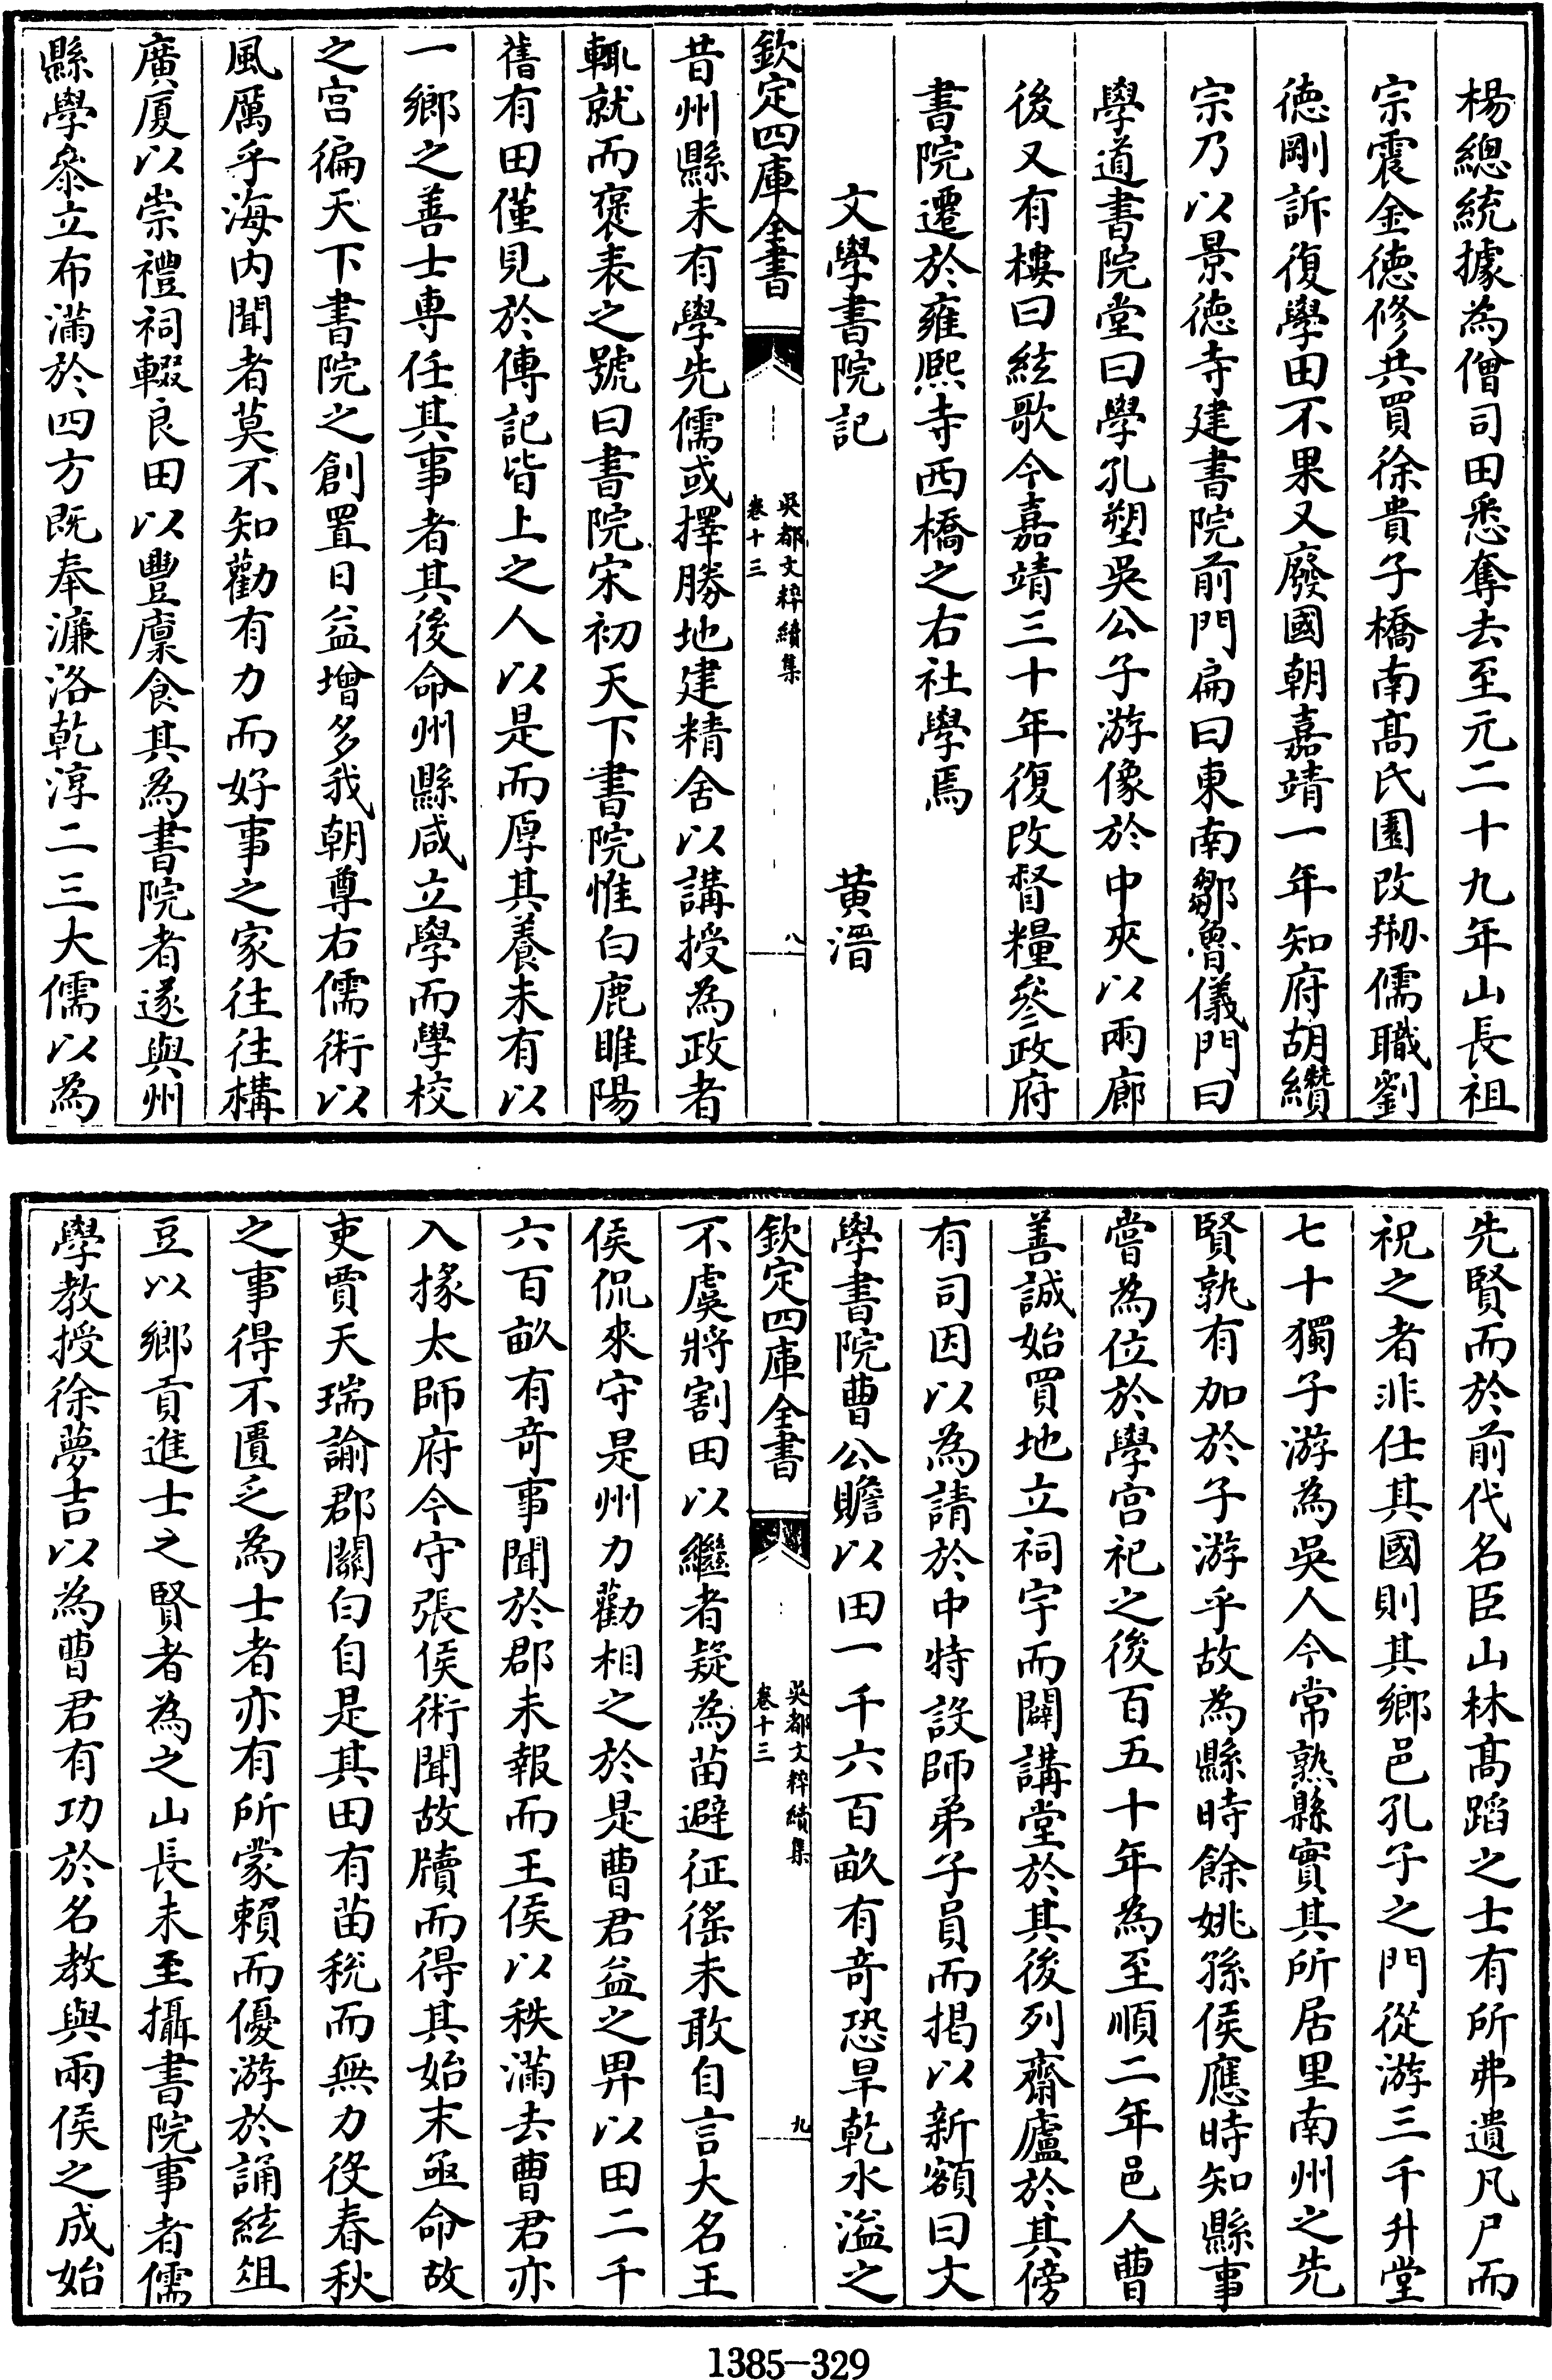 楊總統據為僧司田悉奪去至元二十九年山長祖
宗震金徳修共買徐貴子橋南髙氏園改剏儒職劉
徳剛訴復學田不果又廢國朝嘉靖一年知府胡纘
宗乃以景徳寺建書院前門扁曰東南鄒魯儀門曰
學道書院堂曰學孔塑吳公子游像於中夾以兩廊
後又有樓曰絃歌今嘉靖三十年復改督糧叅政府
書院遷於雍熙寺西橋之右社學焉
文學書院記 黄溍
欽定四庫全書
吳都文粹續集
卷十三
八
昔州縣未有學先儒或擇勝地建精舍以講授為政者
輒就而褒表之號曰書院宋初天下書院惟白鹿睢陽
舊有田僅見於傳記皆上之人以是而厚其養未有以
一鄉之善士専任其事者其後命州縣咸立學而學校
之宫徧天下書院之創置日益增多我朝尊右儒術以
風厲乎海内聞者莫不知勸有力而好事之家往往構
廣厦以崇禮祠輟良田以豐廩食其為書院者遂與州
縣學叅立布滿於四方既奉濂洛乾淳二三大儒以為
先賢而於前代名臣山林髙蹈之士有所弗遺凡尸而
祝之者非仕其國則其鄉邑孔子之門從游三千升堂
七十獨子游為吳人今常熟縣實其所居里南州之先
賢孰有加於子游乎故為縣時餘姚孫侯應時知縣事
嘗為位於學宫祀之後百五十年為至順二年邑人曹
善誠始買地立祠宇而闢講堂於其後列齋廬於其傍
有司因以為請於中特設師弟子員而掲以新額曰文
學書院曹公贍以田一千六百畝有竒恐旱乾水溢之
欽定四庫全書
吳都文粹續集
卷十三
九
不虞將割田以繼者疑為苗避征徭未敢自言大名王
侯侃來守是州力勸相之於是曹君益之畀以田二千
六百畝有竒事聞於郡未報而王侯以秩滿去曹君亦
入掾太師府今守張侯術聞故牘而得其始末亟命故
吏賈天瑞諭郡闗白自是其田有苗税而無力役春秋
之事得不匱乏為士者亦有所蒙賴而優游於誦絃俎
豆以鄉貢進士之賢者為之山長未至攝書院事者儒
學教授徐夢吉以為曹君有功於名教與兩侯之成始
1385-329